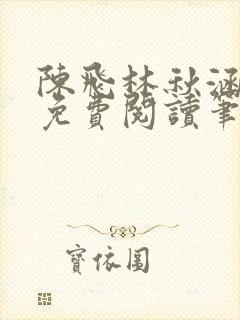 陳飛林秋涵
免費閱讀筆
寶依圖